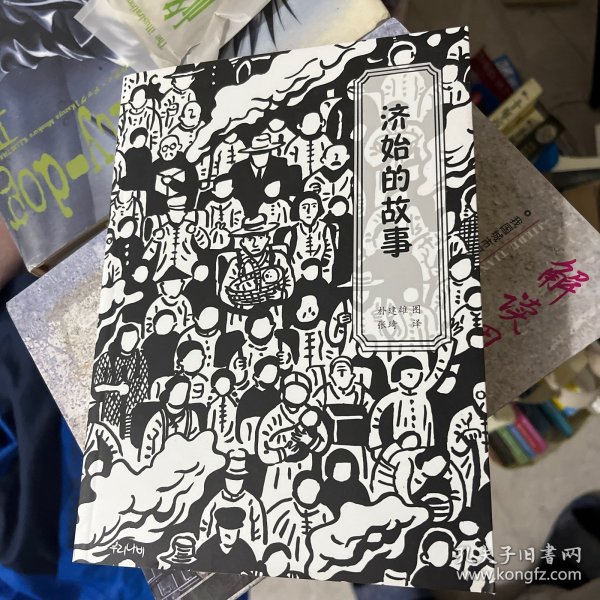 济始的故事
朴建雄 图
张琦 译
우리나비
解读
孔夫子旧书网
www.kongfz.com